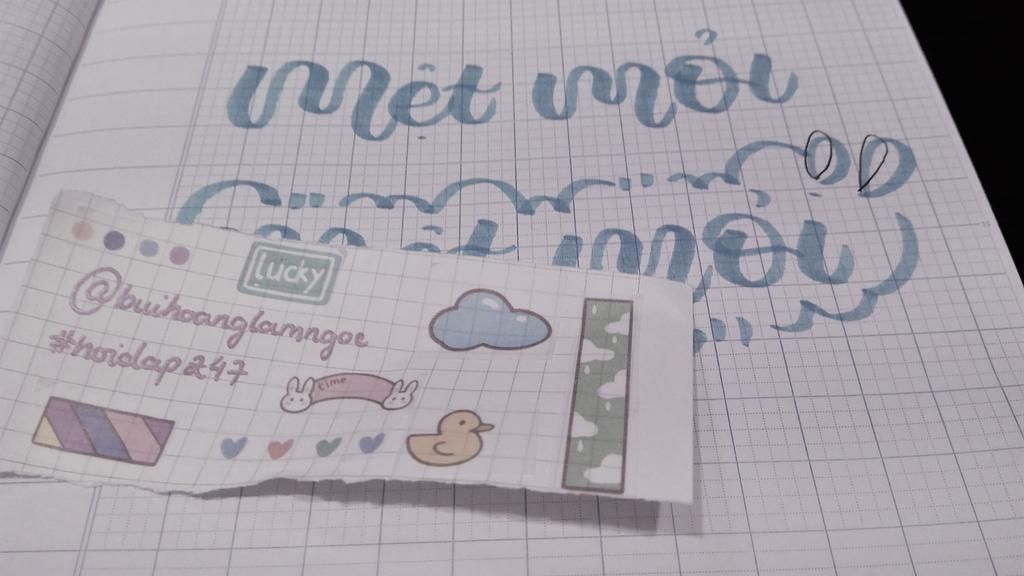 mệt mỏi
mệt mỏi
lucky
@buihoanglamngoc
#hoidap247
time